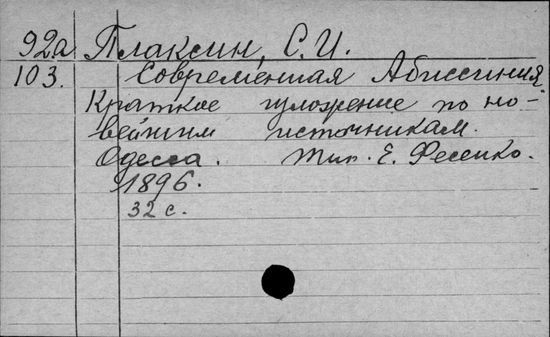 92a Плаксин, С.И.
103. Современная Абиссиния.
Краткое изложение по но-
вейшим источникам.
Одесса. Тип. Е. Фесенко.
1896.
32 с.